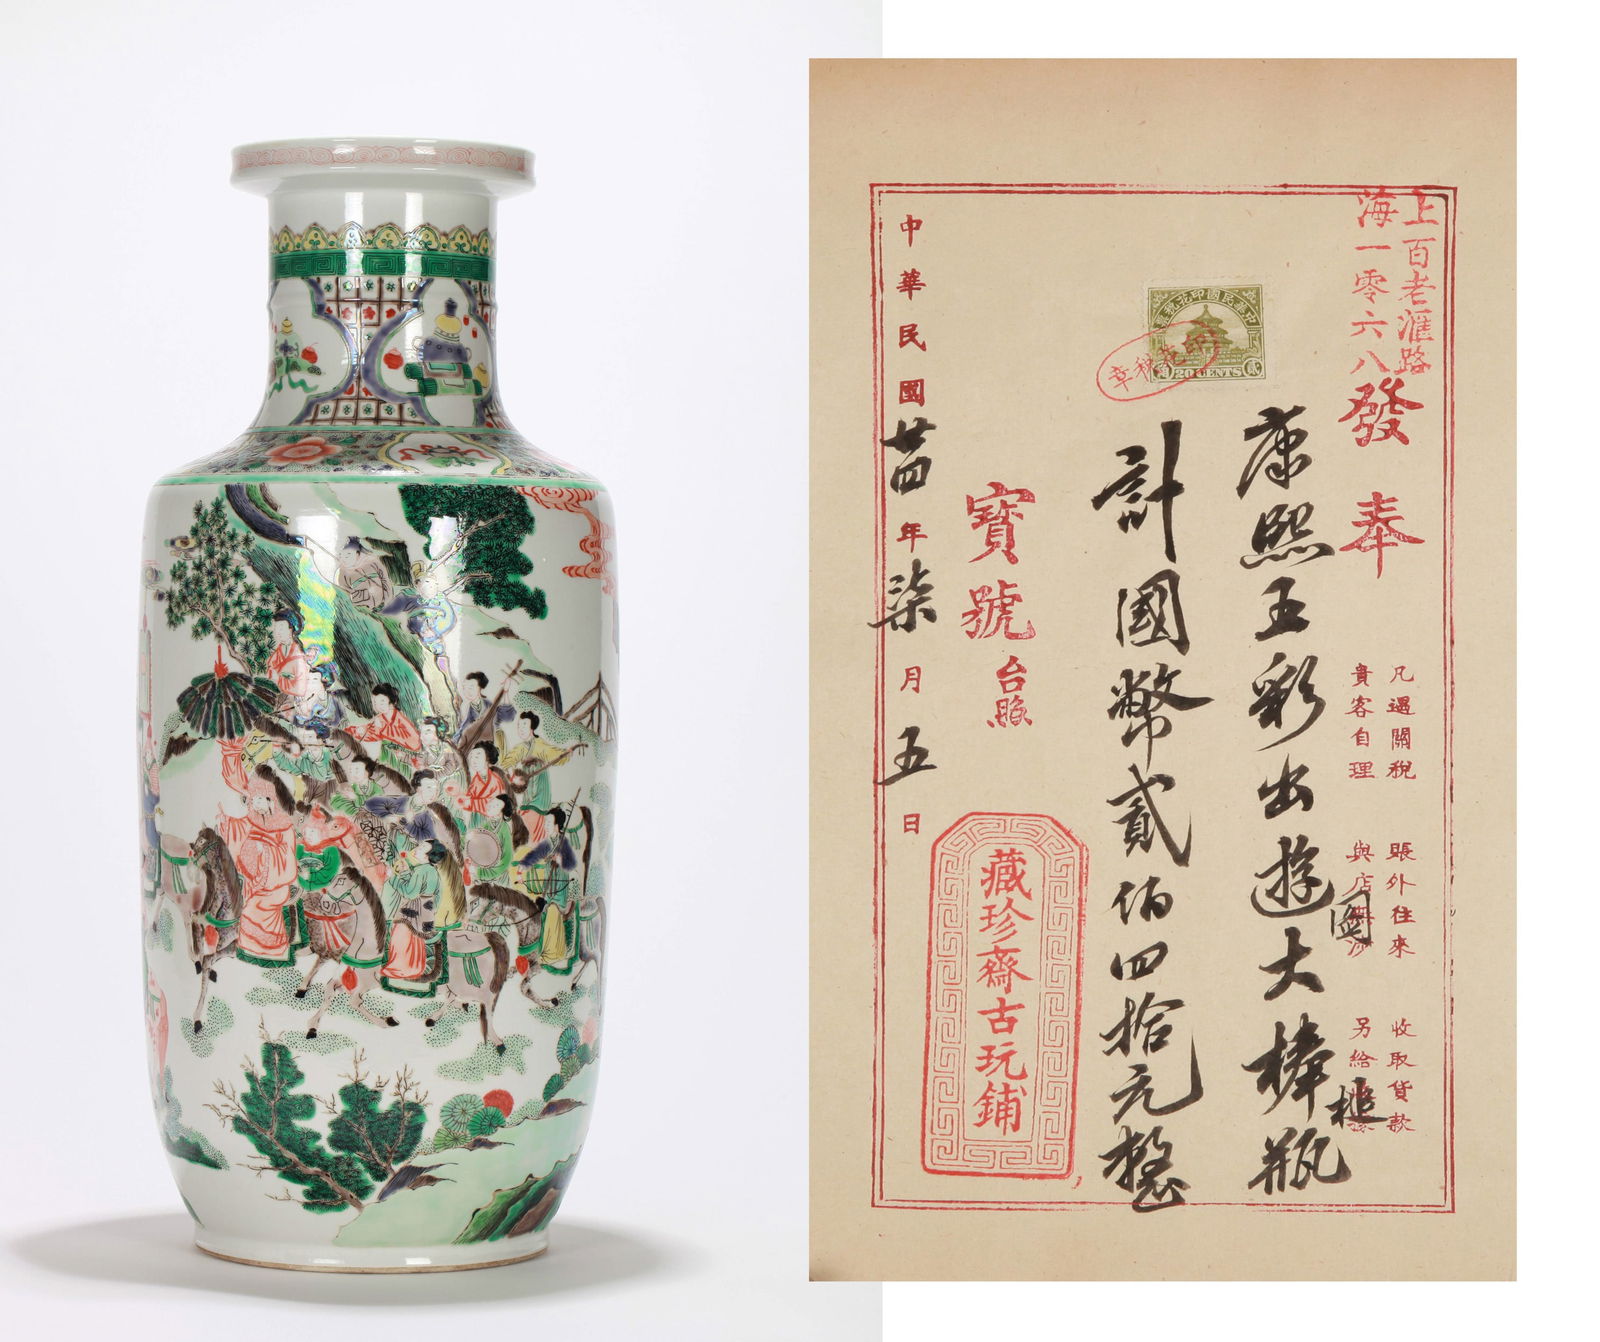 上百老滙路
海一零六八
發奉
凡遇關稅 賬外往來 收取貨款
貴客自理 與店無涉 另給
康熙五彩出遊圖大棒槌瓶
中華民國印花稅票
貳角
20 CENTS
印花稅章
計國幣貳佰四拾元整
寶號台照
藏珍齋古玩鋪
中華民國廿四年柒月五日